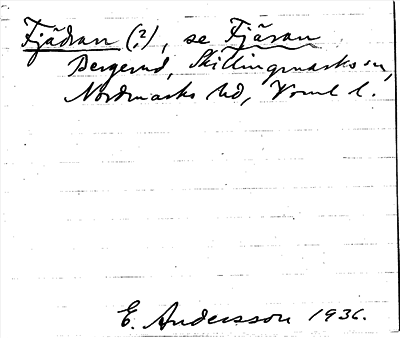 Fjädran (?), se Fjäran
Bergerud, Skillingmarks sn,
Nordmarks hd, Vrml l.
E. Andersson 1936.